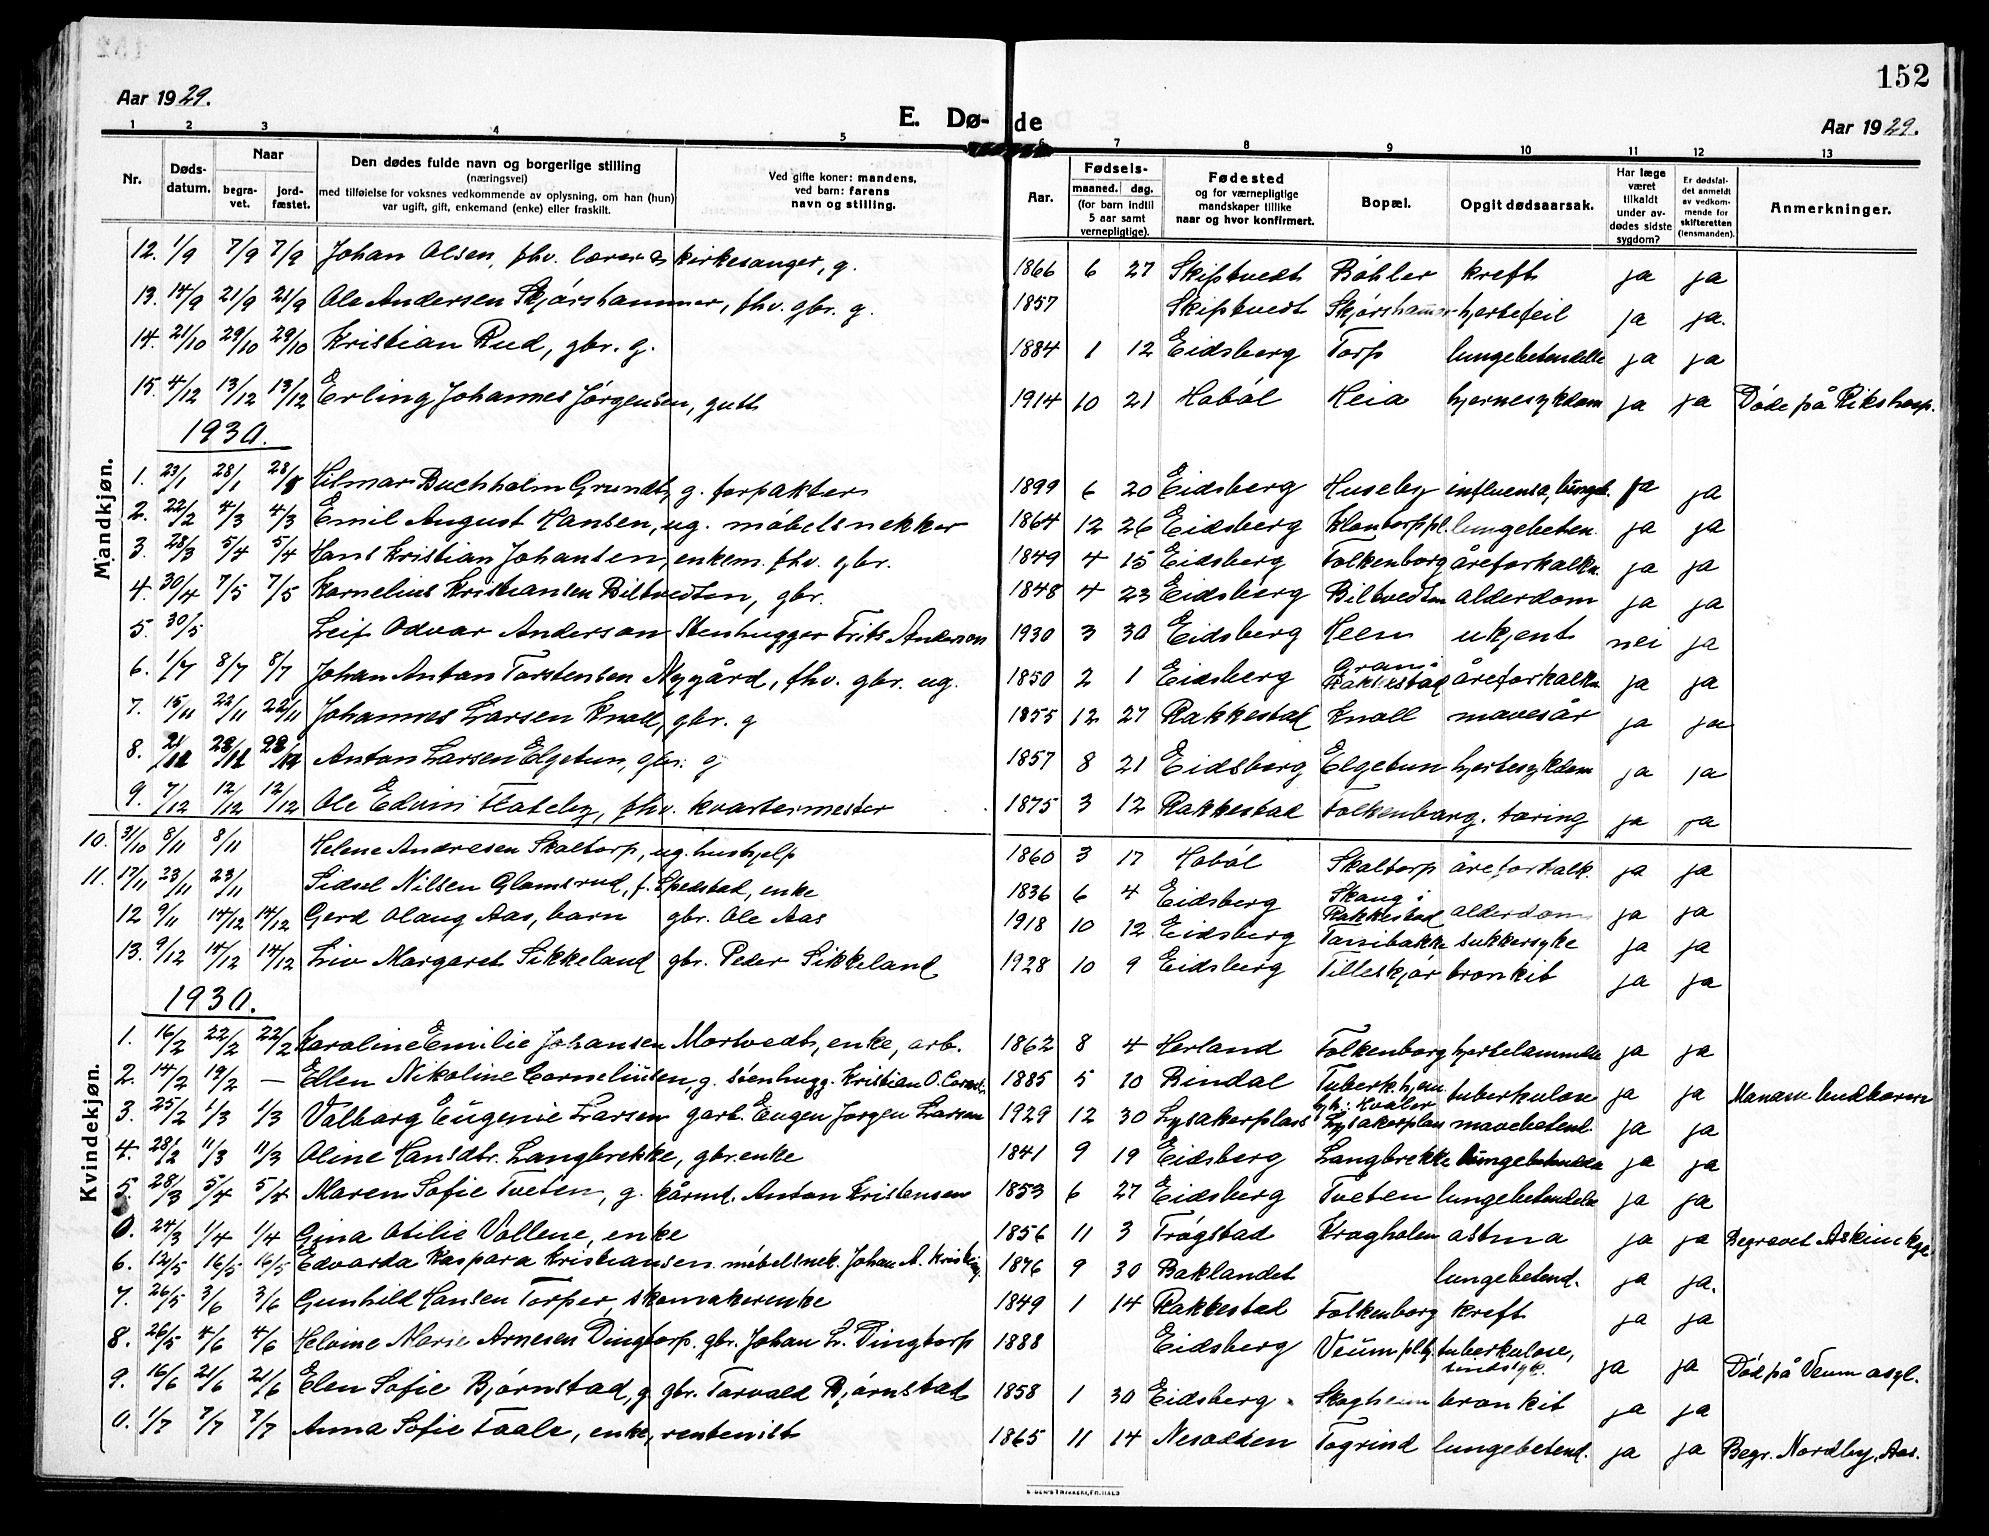 152
Aar 1929.
E. Dø- de
Aar 1929.
1 2 3 4 5 6 7 8 9 10 11 12 13
Nr.
Døds-
datum.
Naar
begra-
vet.
jord-
fæstet.
Den dødes fulde navn og borgerlige stilling
(næringsvei)
med tilføielse for voksnes vedkommende av oplysning, om han (hun)
var ugift, gift, enkemand (enke) eller fraskilt.
Ved gifte koner: mandens,
ved barn: farens
navn og stilling.
Aar.
Fødsels-
maaned. dag.
(for barn indtil
5 aar samt
vernepligtige).
Fødested
og for værnepligtige
mandskaper tillike
naar og hvor konfirmert.
Bopæl.
Opgit dødsaarsak.
Har læge
været
tilkaldt
under av-
dødes sidste
sygdom?
Er dødsfal-
det anmeldt
av vedkom-
mende for
skifteretten
(lensmanden).
Anmerkninger.
Mandkjøn.
12. 1/9 7/9 7/9 Johan Olsen, fhv. lærer & kirkesanger, g. 1866 6 27 Skiptvedt Bøhler kreft ja ja
13. 14/9 21/9 21/9 Ole Andersen Skjørshammer, fhv. gbr. g. 1857 Skiptvedt Skjørshammer hjertefeil ja ja.
14. 21/10 29/10 29/10 Kristian Rud, gbr. g. 1884 1 12 Eidsberg Torp lungebetendelse ja ja
15. 4/12 13/12 13/12 Erling Johannes Jørgensen, gutt 1914 10 21 Hobøl Heia hjernesykdom ja ja Døde på Rikshosp.
1930.
1. 23/1 28/1 28/1 Hilmar Buchholm Grundt, g. forpakter 1899 6 20 Eidsberg Huseby influensa, lungeb. ja ja
2. 22/2 4/3 4/3 Emil August Hansen, ug. møbelsnekker 1864 12 26 Eidsberg Klontorppl. lungebeten. ja ja
3. 28/3 5/4 5/4 Hans Kristian Johansen, enkem. fhv. gbr. 1849 4 15 Eidsberg Folkenborg åreforkalkn. ja ja
4. 30/4 7/5 7/5 Kornelius Kristiansen Biltvedten, gbr. 1848 4 23 Eidsberg Biltvedten alderdom ja ja
5. 30/5 Leif Odvar Anderson Stenhugger Frits Anderson 1930 3 30 Eidsberg Heen ukjent nei ja
6. 1/7 8/7 8/7 Johan Anton Torstensen Nygård, fhv. gbr. ug. 1850 2 1 Eidsberg Gran i Rakkestad åreforkalkn ja ja
7. 15/11 22/11 22/11 Johannes Larsen Knoll, gbr. g 1855 12 27 Rakkestad Knoll mavesår ja ja
8. 21/12 28/12 28/12 Anton Larsen Elgetun, gbr. g 1857 8 21 Eidsberg Elgetun hjertesykdom ja ja
9. 7/12 12/12 12/12 Ole Edvin Flateby, fhv. kvartermester 1875 3 12 Rakkestad Folkenborg. tæring ja ja
Kvindekjøn.
10. 31/10 8/11 8/11 Helene Andresen Skoltorp, ug. hushjelp 1860 3 17 Hobøl Skoltorp åreforkalk. ja ja
11. 17/11 23/11 23/11 Sidsel Nilsen Glomsrud, f. Spedstad, enke 1836 6 4 Eidsberg Skaug i Rakkestad alderdom ja ja
12 9/11 14/12 14/12 Gerd Olaug Aas, barn gbr. Ole Aas 1918 10 12 Eidsberg Tarsibakke sukkersyke ja ja
13. 9/12 14/12 14/12 Liv Margaret Sikkeland gbr. Peder Sikkeland 1928 10 9 Eidsberg Tilleskjør bronkit ja ja
1930.
1. 16/2 22/2 22/2 Karoline Emilie Johansen Mortvedt, enke, arb. 1862 8 4 Herland Folkenborg hjertelammelse ja ja
2. 14/2 19/2 — Ellen Nikoline Corneliusen, g. stenhugg. Kristian O. Cornel. 1885 5 10 Bindal Tuberk.hjem Hvaler tuberkulose ja ja
3. 25/2 1/3 1/3 Valborg Eugenie Larsen garb. Eugen Jørgen Larsen 1929 12 30 Lysakerplass Lysakerplass mavebetend. ja ja
4. 28/2 11/3 11/3 Oline Hansdtr. Langbrekke, gbr.enke 1841 9 19 Eidsberg Langbrekke lungebetendelse ja ja
5. 28/3 5/4 5/4 Maren Sofie Tveten, g. kårmd. Anton Kristensen 1853 6 27 Eidsberg Tveten lungebetendelse ja ja
0. 24/3 1/4 1/4 Gina Otilie Vollene, enke 1856 11 3 Trøgstad Kragholen astma ja ja Begravet Askim kge.
6. 12/5 16/5 16/5 Edvarda Kaspara Kristiansen. møbelsnek. Johan A. Kristians. 1876 9 30 Baklandet lungebetend. ja ja.
7. 26/5 3/6 3/6 Gunhild Hansen Torper, skomakerenke 1849 1 14 Rakkestad Folkenborg kreft ja ja
8. 26/5 4/6 4/6 Helvine Marie Arnesen Dingtorp. gbr. Johan Lr. Dingtorp 1888 Eidsberg Veum tuberkulose, sindssyk. ja ja Død på Veum asyl.
9. 16/6 21/6 21/6 Elen Sofie Bjørnstad, g. gbr. Torvald Bjørnstad 1858 1 30 Eidsberg Skogheim bronkit ja ja
0. 1/7 7/7 7/7 Anna Sofie Foale, enke, rentenist 1865 11 14 Nesodden Togrind lungebetend. ja ja Begr. Nordby, Aas.